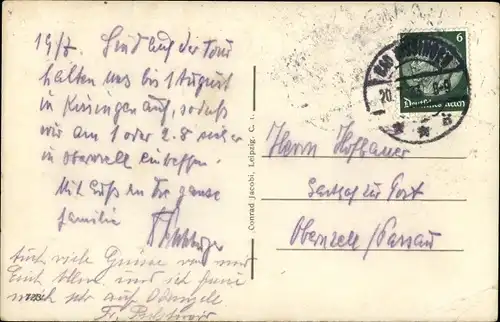 19/7. Sind auf der Tour
halten uns bis 1 August
in Kissingen auf, sodaß
wir am 1 oder 2.8 sicher
in Obernzell eintreffen.
Mit Gruß an die ganze
Familie
auch viele Grüsse von mir
Euch allen und ich freue
mich sehr auf Obernzell
Fr.
7283
Conrad Jacobi, Leipzig. C. 1.
BAD KISSINGEN
20.
B
6
Deutsches Reich
Herrn Hofbauer
Gasthof zur Post
Obernzell/Passau